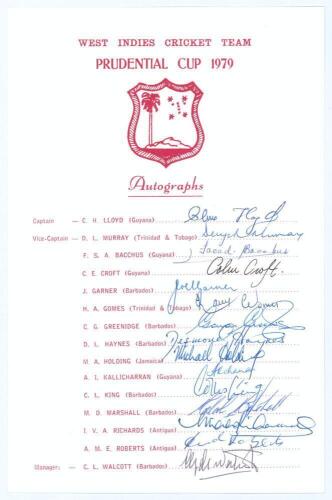 WEST INDIES CRICKET TEAM
PRUDENTIAL CUP 1979
Autographs
Captain — C. H. LLOYD (Guyana) Clive Lloyd
Vice-Captain — D. L. MURRAY (Trinidad & Tobago) Deryck Murray
F. S. A. BACCHUS (Guyana) Faoud Bacchus
C. E. CROFT (Guyana) Colin Croft.
J. GARNER (Barbados) Joel Garner
H. A. GOMES (Trinidad & Tobago) Larry Gomes
C. G. GREENIDGE (Barbados) Gordon Greenidge
D. L. HAYNES (Barbados) Desmond Haynes
M. A. HOLDING (Jamaica) Michael Holding
A. I. KALLICHARRAN (Guyana)
C. L. KING (Barbados) Collis King
M. D. MARSHALL (Barbados)
I. V. A. RICHARDS (Antigua)
A. M. E. ROBERTS (Antigua)
Manager: — C. L. WALCOTT (Barbados) Clyde Walcott